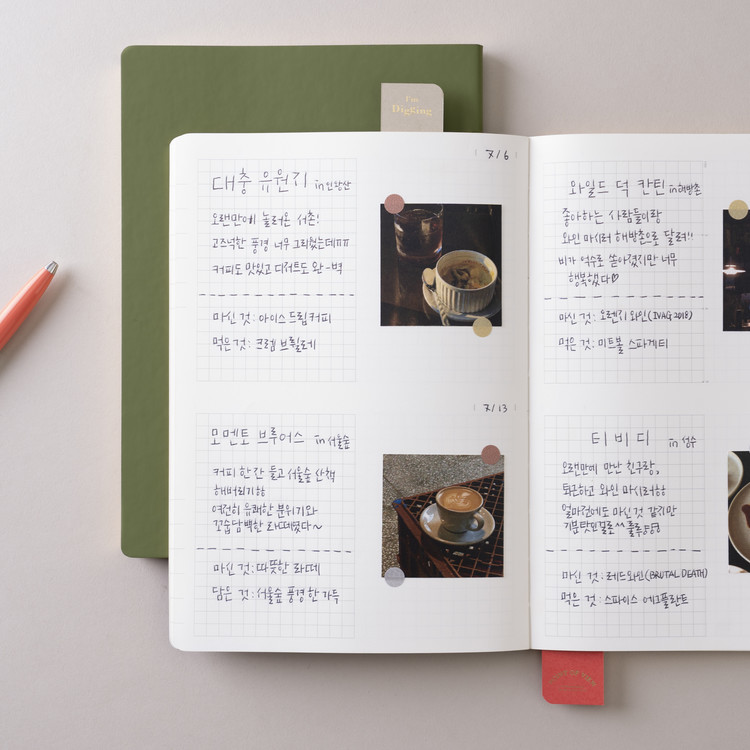 I'm
Digging
7/6
대충유원지 in 인왕산
오랜만에 놀러온 서촌!
고즈넉한 풍경 너무 그리웠는데ㅠㅠ
커피도 맛있고 디저트도 완-벽
마신 것: 아이스 드립 커피
먹은것: 크렘 브륄레
7/13
모멘토 브루어스 in 서울숲
커피 한 잔 들고 서울숲 산책
해버리기ㅎㅎ
여전히 유쾌한 분위기와
꼬숩담백한 라떼였다~
마신 것: 따뜻한 라떼
담은 것: 서울숲 풍경 한 가득
와일드 덕 칸틴 in 해방촌
좋아하는 사람들이랑
와인 마시러 해방촌으로 달려!!
비가 억수로 쏟아졌지만 너무
행복했다♡
마신 것: 오렌지 와인(IVAG 2018)
먹은 것: 미트볼 스파게티
티비디 in 성수
오랜만에 만난 친구랑,
퇴근하고 와인 마시러ㅎㅎ
얼마전에도 마신 것 같지만
마신 것: 레드와인(BRUTAL DEATH)
먹은 것: 스파이스 에그플란트